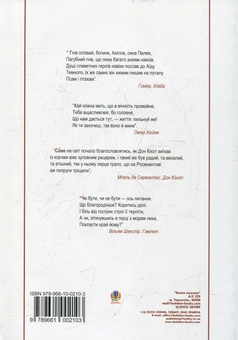 " Гнів оспівай, богине, Ахілла, сина Пелея,
Пагубний гнів, що лиха багато ахеям накоїв:
Душі славетних героїв навіки послав до Аїду
Темного, їх же самих він хижим лишив на поталу
Псам і птахам".
Гомер, Іліада
"Хай кожна мить, що в вічність промайне,
Тебе вщасливлює, бо головне,
Що нам дається тут, — життя: пильнуй же!
Як ти захочеш, так воно й мине".
Омар Хайям
"Саме на світ почало благословлятись, як Дон Кіхот виїхав
із корчми вже зуповним рицарем, і такий же був радий, та веселий,
та втішний, так у ньому серце грало, що на Росинантові
аж попруги тріщали".
Мігель де Сервантес, Дон-Кіхот
"Чи бути, чи не бути — ось питання.
Що благородніше? Коритись долі
І біль від гострих стріл її терпіти,
А чи, зітнувшись в герці з морем лиха,
Покласти край йому?"
Вільям Шекспір, Гамлет
ISBN 978-966-10-0210-3
9 789661 002103